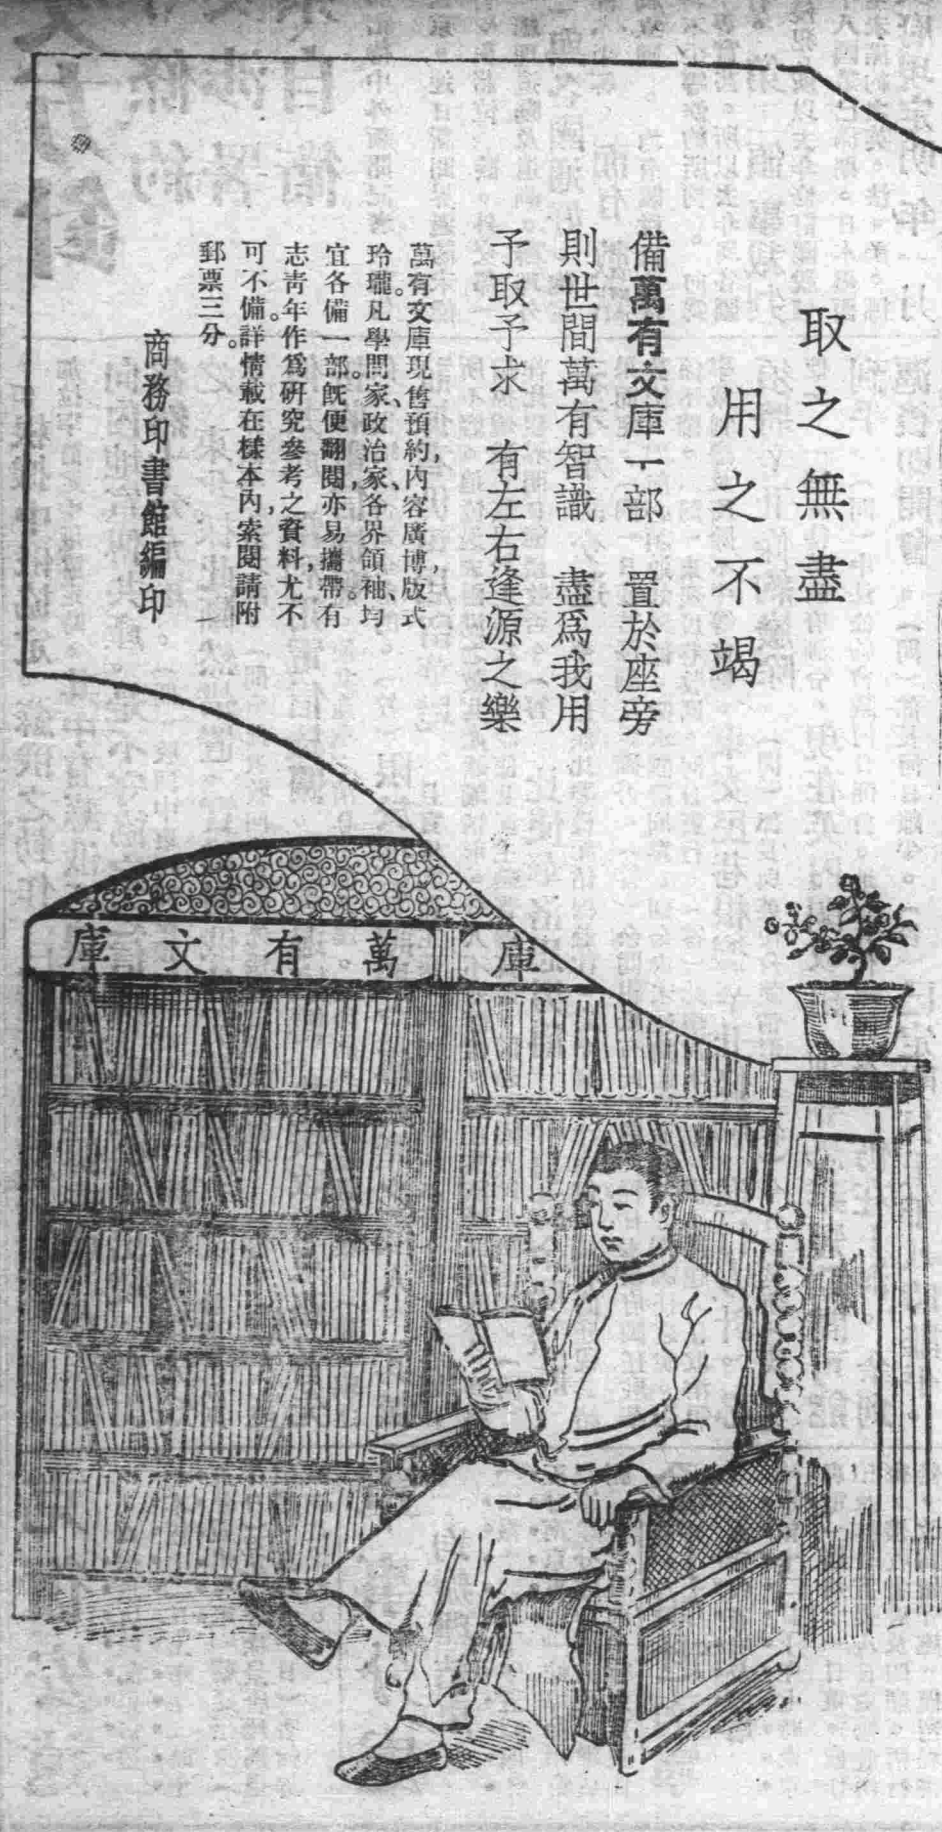 取之無盡
用之不竭
備萬有文庫一部　置於座旁
則世間萬有智識　盡爲我用
予取予求　有左右逢源之樂
萬有文庫現售預約，內容廣博，版式
玲瓏。凡學問家、政治家、各界領袖、均
宜各備一部。旣便翻閱，亦易攜帶。有
志靑年作爲研究參考之資料，尤不
可不備。詳情載在樣本內，索閱請附
郵票三分。
商務印書館編印
庫文有萬
庫